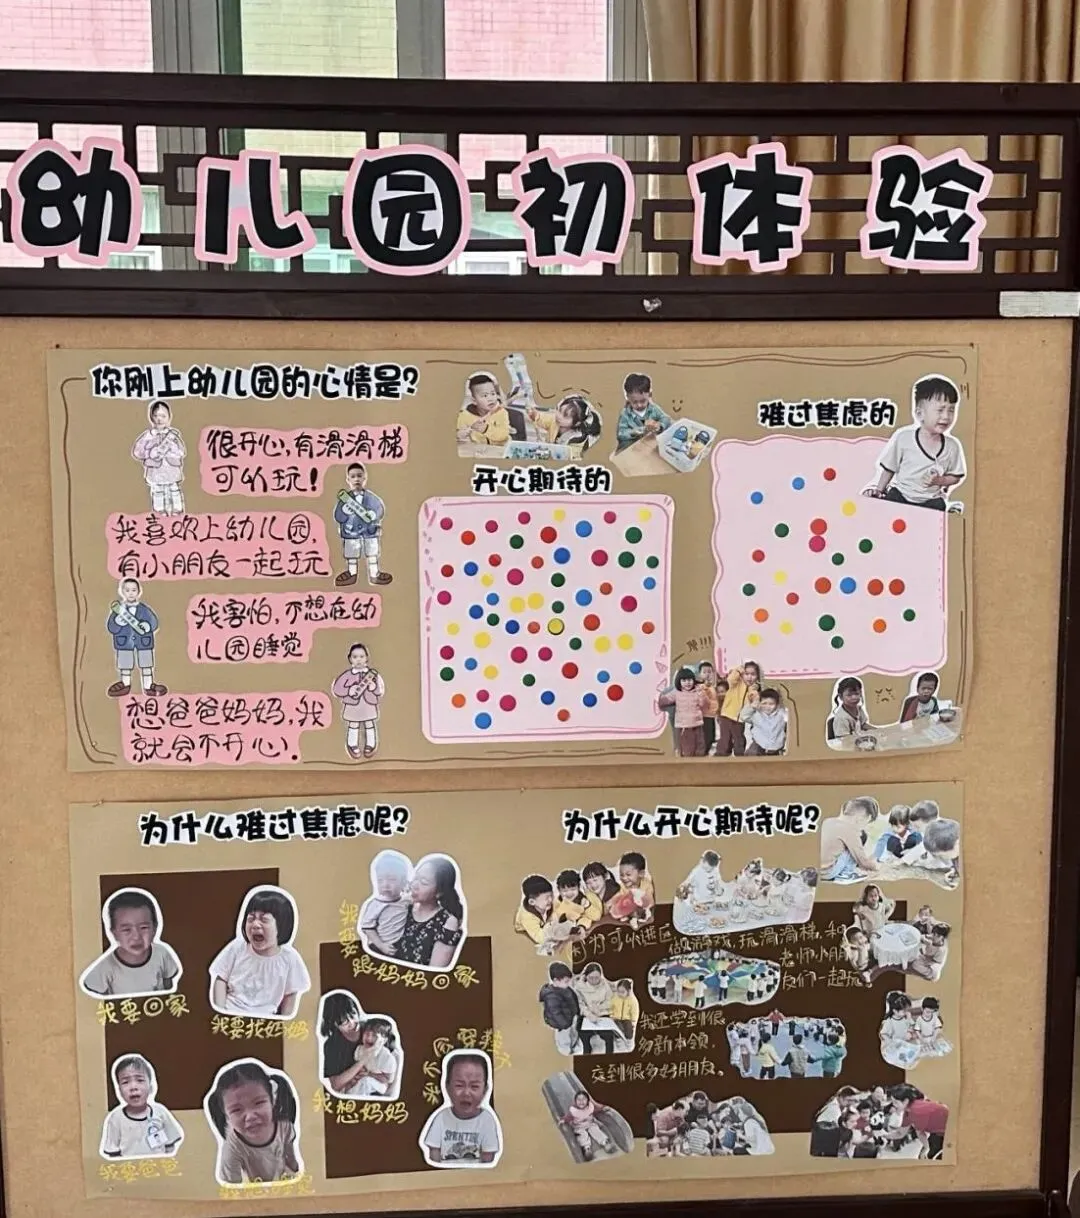 幼儿园初体验
你刚上幼儿园的心情是?
很开心,有滑滑梯
可以玩!
我喜欢上幼儿园,
有小朋友一起玩
我害怕,不想在幼
儿园睡觉
想爸爸妈妈,我
就会不开心.
开心期待的
难过焦虑的
为什么难过焦虑呢?
我要回家
我要找妈妈
我要跟妈妈回家
我要爸爸
我想妈妈
为什么开心期待呢?
因为可以进区做游戏,玩滑滑梯,和
老师小朋
友们一起玩.
我还学到很
多新本领.
交到很多好朋友。